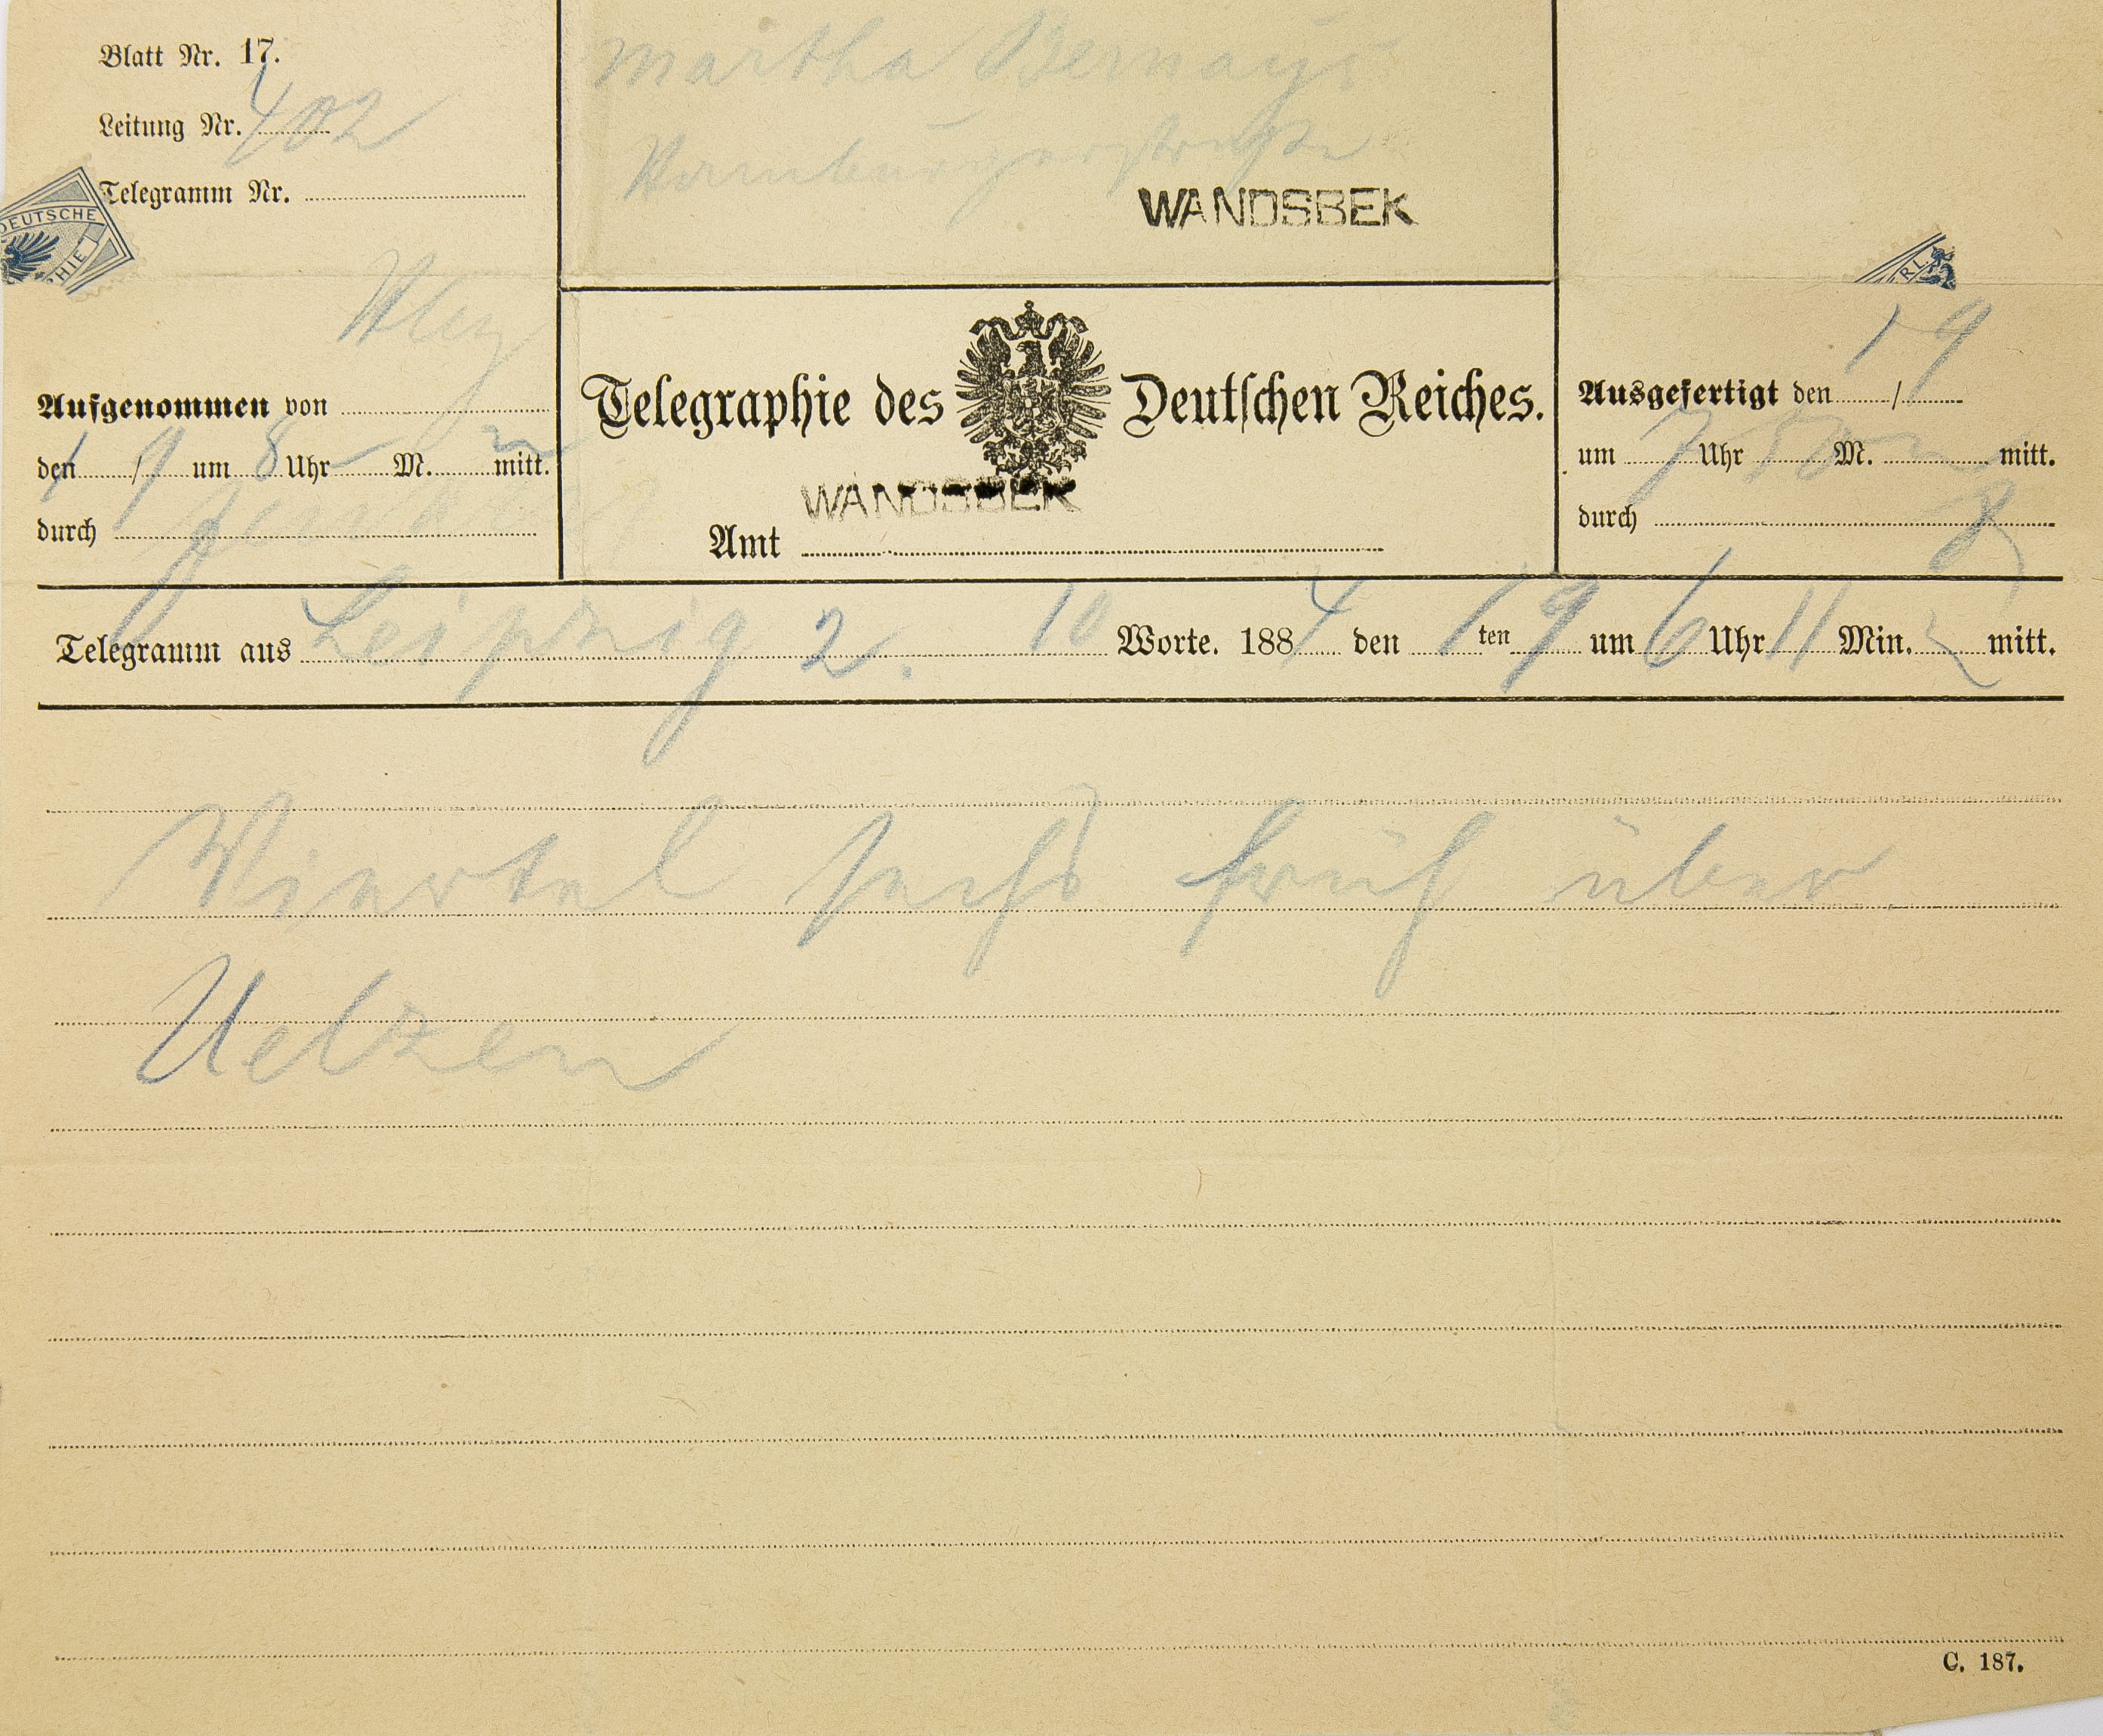 Blatt Nr. 17.
Leitung Nr. 402
Telegramm Nr.
Martha Bernays
Hamburgerstraße
WANDSBEK
DEUTSCHE
PHIE
RL.
Aufgenommen von Hbg
den 1/9 um 8 Uhr – M. n mitt.
durch
Telegraphie des Deutschen Reiches.
WANDSBEK
Amt
Ausgefertigt den 1/9
um 7 Uhr 50 M. n mitt.
durch
Telegramm aus Leipzig 2. 10 Worte. 1884 den 1ten 9 um 6 Uhr 11 Min. n mitt.
Viertel sechs früh über
Uelzen
C. 187.